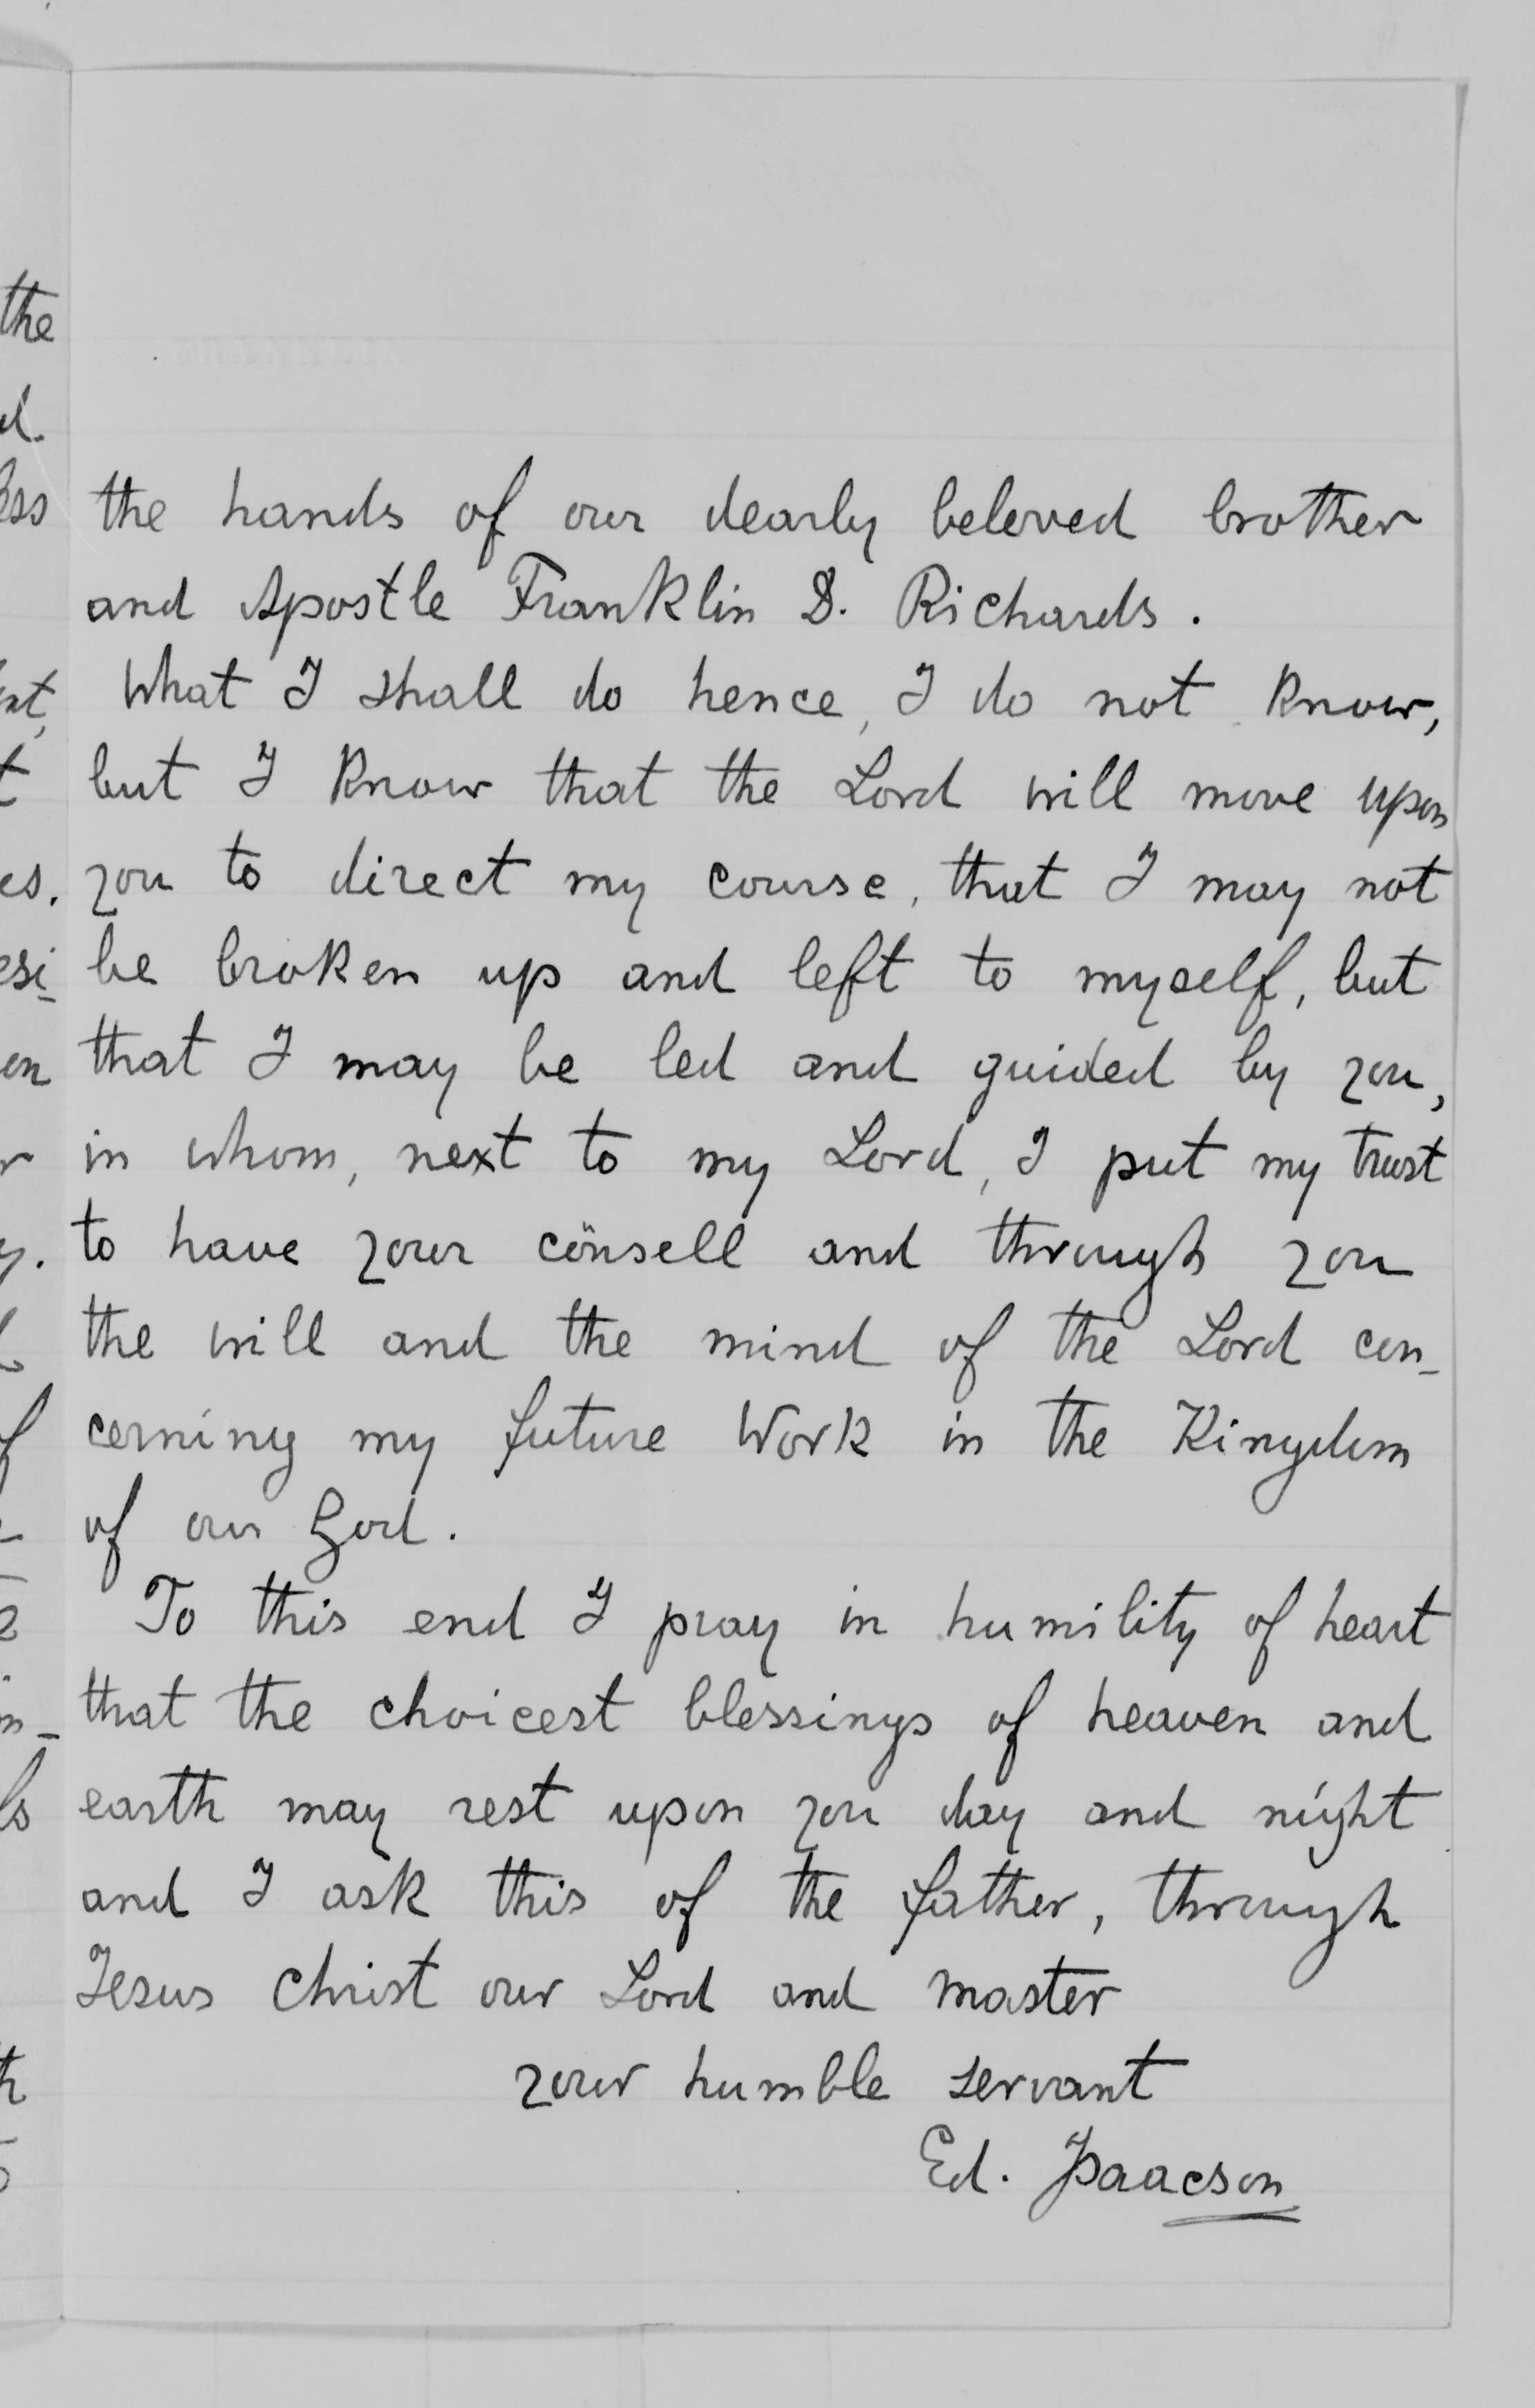 the hands of our dearly beloved brother
and Apostle Franklin D. Richards.
What I shall do hence, I do not know,
but I know that the Lord will move upon
you to direct my course, that I may not
be broken up and left to myself, but
that I may be led and guided by you,
in whom, next to my Lord, I put my trust
to have your cönsell and through you
the will and the mind of the Lord con-
cerning my future Work in the Kingdom
of our God.
To this end I pray in humility of heart
that the choicest blessings of heaven and
earth may rest upon you day and night
and I ask this of the father, through
Jesus Christ our Lord and master
your humble servant
Ed. Isaacson